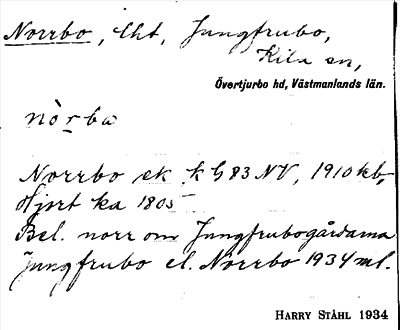 Norrbo, lht, Jungfrubo,
Kila sn,
Övertjurbo hd, Västmanlands län.
nòrba
Norrbo ek. k G 83 NV, 1910 kb,
Hjort ka 1805
Bel. norr om Jungfrubogårdarna
Jungfrubo el. Norrbo 1934 ml.
HARRY STÅHL 1934